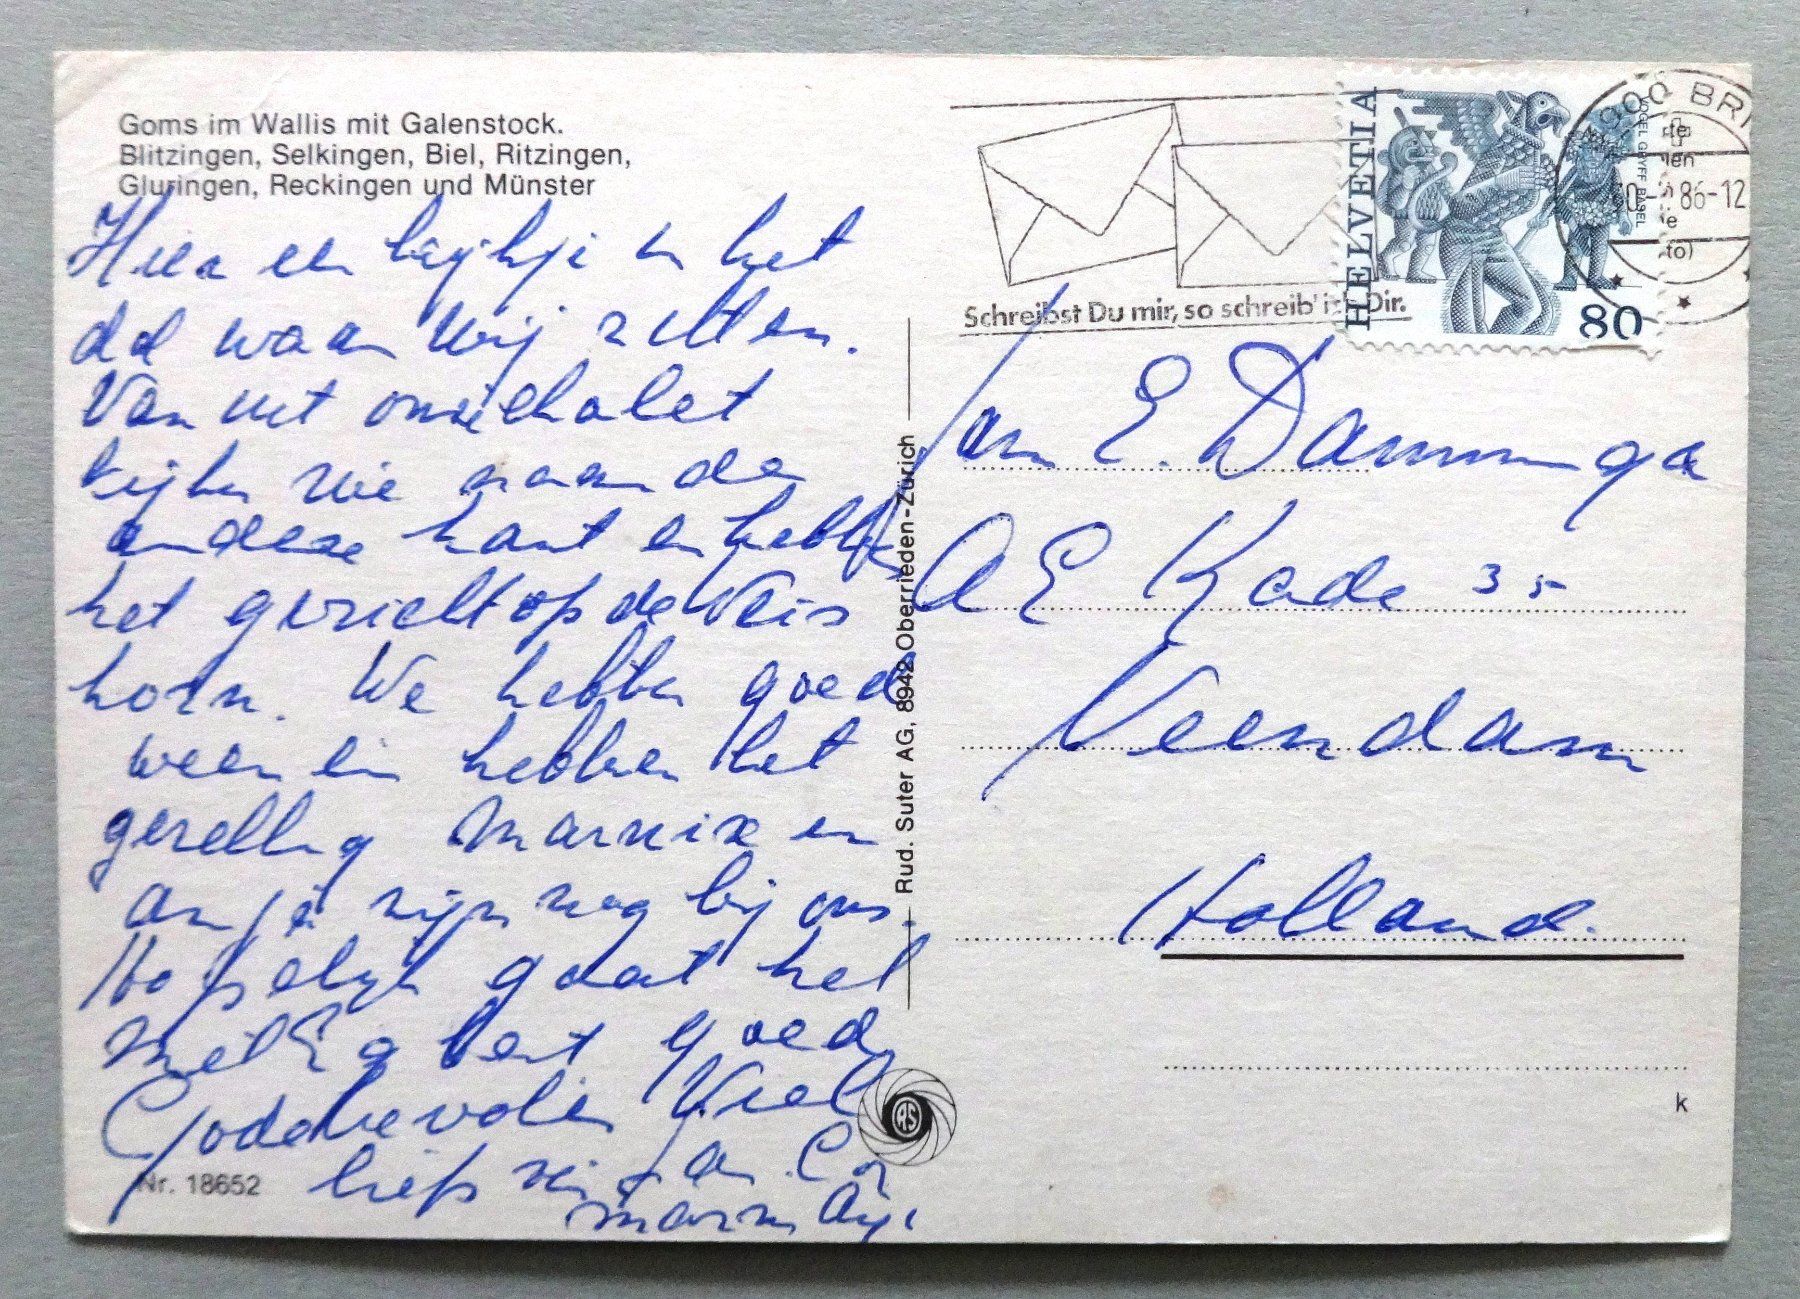 Goms im Wallis mit Galenstock.
Blitzingen, Selkingen, Biel, Ritzingen,
Gluringen, Reckingen und Münster
Hier een in het
dal waar wij zitten.
Van uit onze chalet
kijken we naar de
andere kant en hebben
het gezicht op de Weis
horn. We hebben goed
weer en hebben het
gezellig Marnix en
zijn nog bij ons.
Hopelijk gaat het
met goed
Veel
liefs van Cor
Rud. Suter AG, 8942 Oberrieden-Zürich
Nr. 18652
Schreibst Du mir, so schreib' ich Dir.
HELVETIA
VOGEL GRYFF BASEL
80
86-12
Fam E. Damminga
A E Kade 35
Veendam
Holland.
k